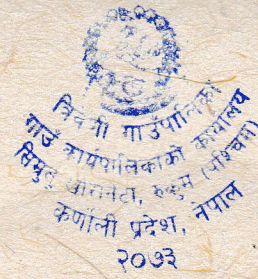 त्रिवेणी गाउँपालिका
गाउँ कार्यपालिकाको कार्यालय
सिम्रुतु, रुकुम (पश्चिम)
कर्णाली प्रदेश, नेपाल
२०७३